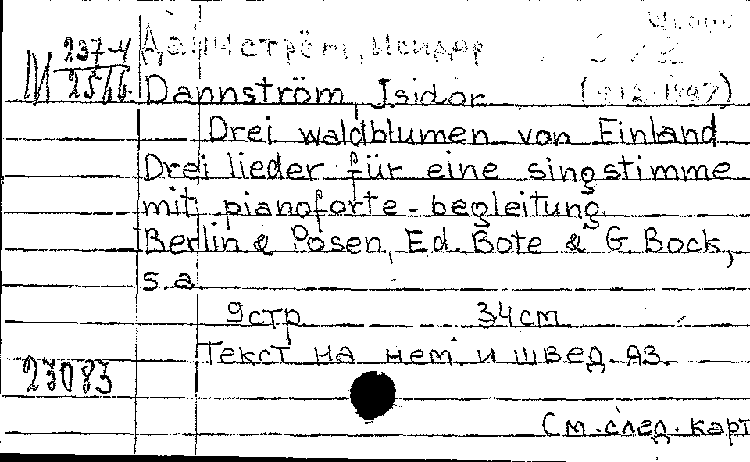 М 237-4
25
Даннстрём, Исидор
Dannström, Isidor (1812-1897)
Drei waldblumen von Einland
Drei lieder für eine singstimme
mit pianoforte-begleitung.
Berlin & Posen, Ed. Bote & G. Bock,
s.a.
9 стр 34 cm
Текст на нем. и швед. яз.
23083
См. след. карт